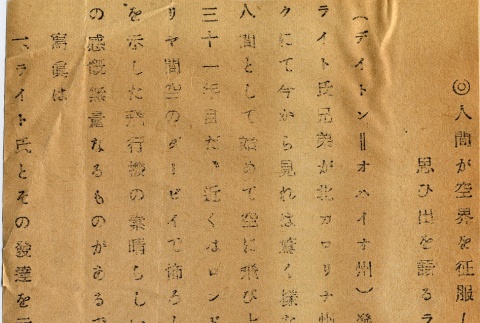 ◎人間が空界を征服し
思ひ出を語るラ
(デイトン＝オハイオ州)發
ライト氏兄弟が北カロリナ州
クにて今から見れは驚く樣な
人間として始めて空に飛び上
三十一年目だ、近くはロンド
リヤ間空のダービイで怖ろし
を示した飛行機の素晴らしい
の感慨無量なるものがあるで
寫眞は
一、ライト氏とその發達を示